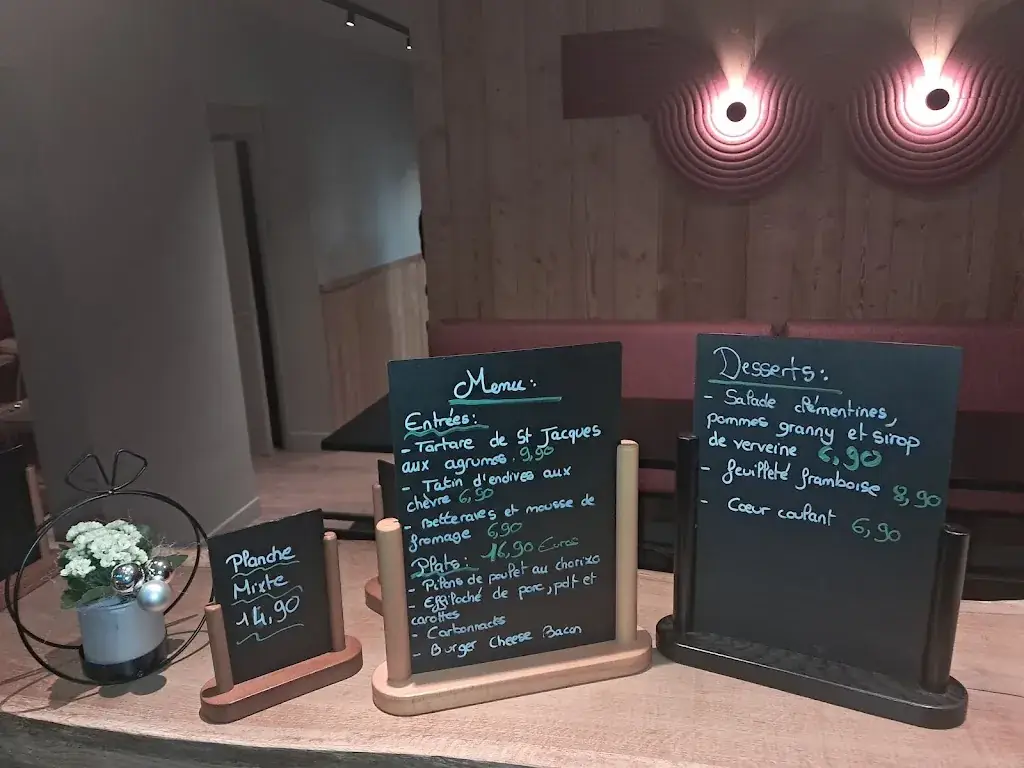 Planche
Mixte
14,90
Menu:
Entrées:
- Tartare de St Jacques
aux agrumes. 9,90
- Tatin d'endives aux
chèvre 6,90
- Betteraves et mousse de
fromage 6,90
Plats: 16,90 Euros
- Pilons de poulet au chorizo
- Effiloché de porc, pdt et
carottes
- Carbonnade
- Burger Cheese Bacon
Desserts:
- Salade clémentines,
pommes granny et sirop
de verveine 6,90
- feuilleté framboise 8,90
- Cœur coulant 6,90